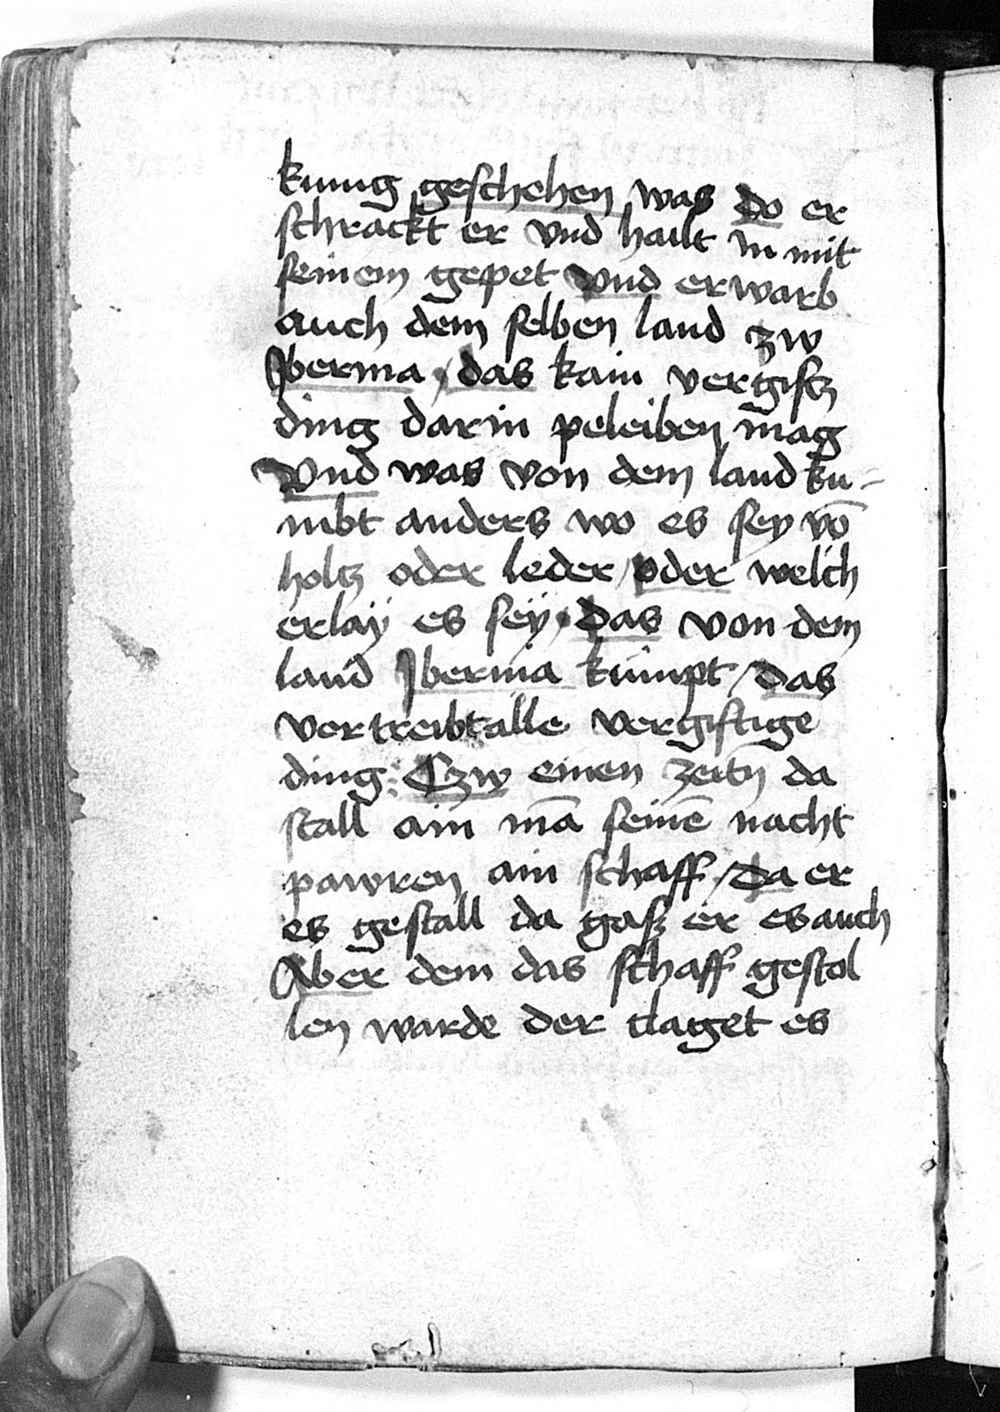 kunig geschehen was do er
schrackt er vnd hailt in mit
seinem gepet vnd erwarb
auch dem selben land zw
Jbernia / das kain vergiftz
ding darin peleiben mag
Vnd was von dem land ku-
mbt anders wo es sey vō
holtz oder leder / oder welch
erlaÿ es seÿ · das von dem
land Jbernia kumpt / das
vertreibt alle vergiftige
ding : Czw einen zeitn̄ da
stall ain mā seinē nacht
pawren ain schaff / da er
es gestall da gasz er es auch
Aber dem das schaff gestol
len warde der claget es